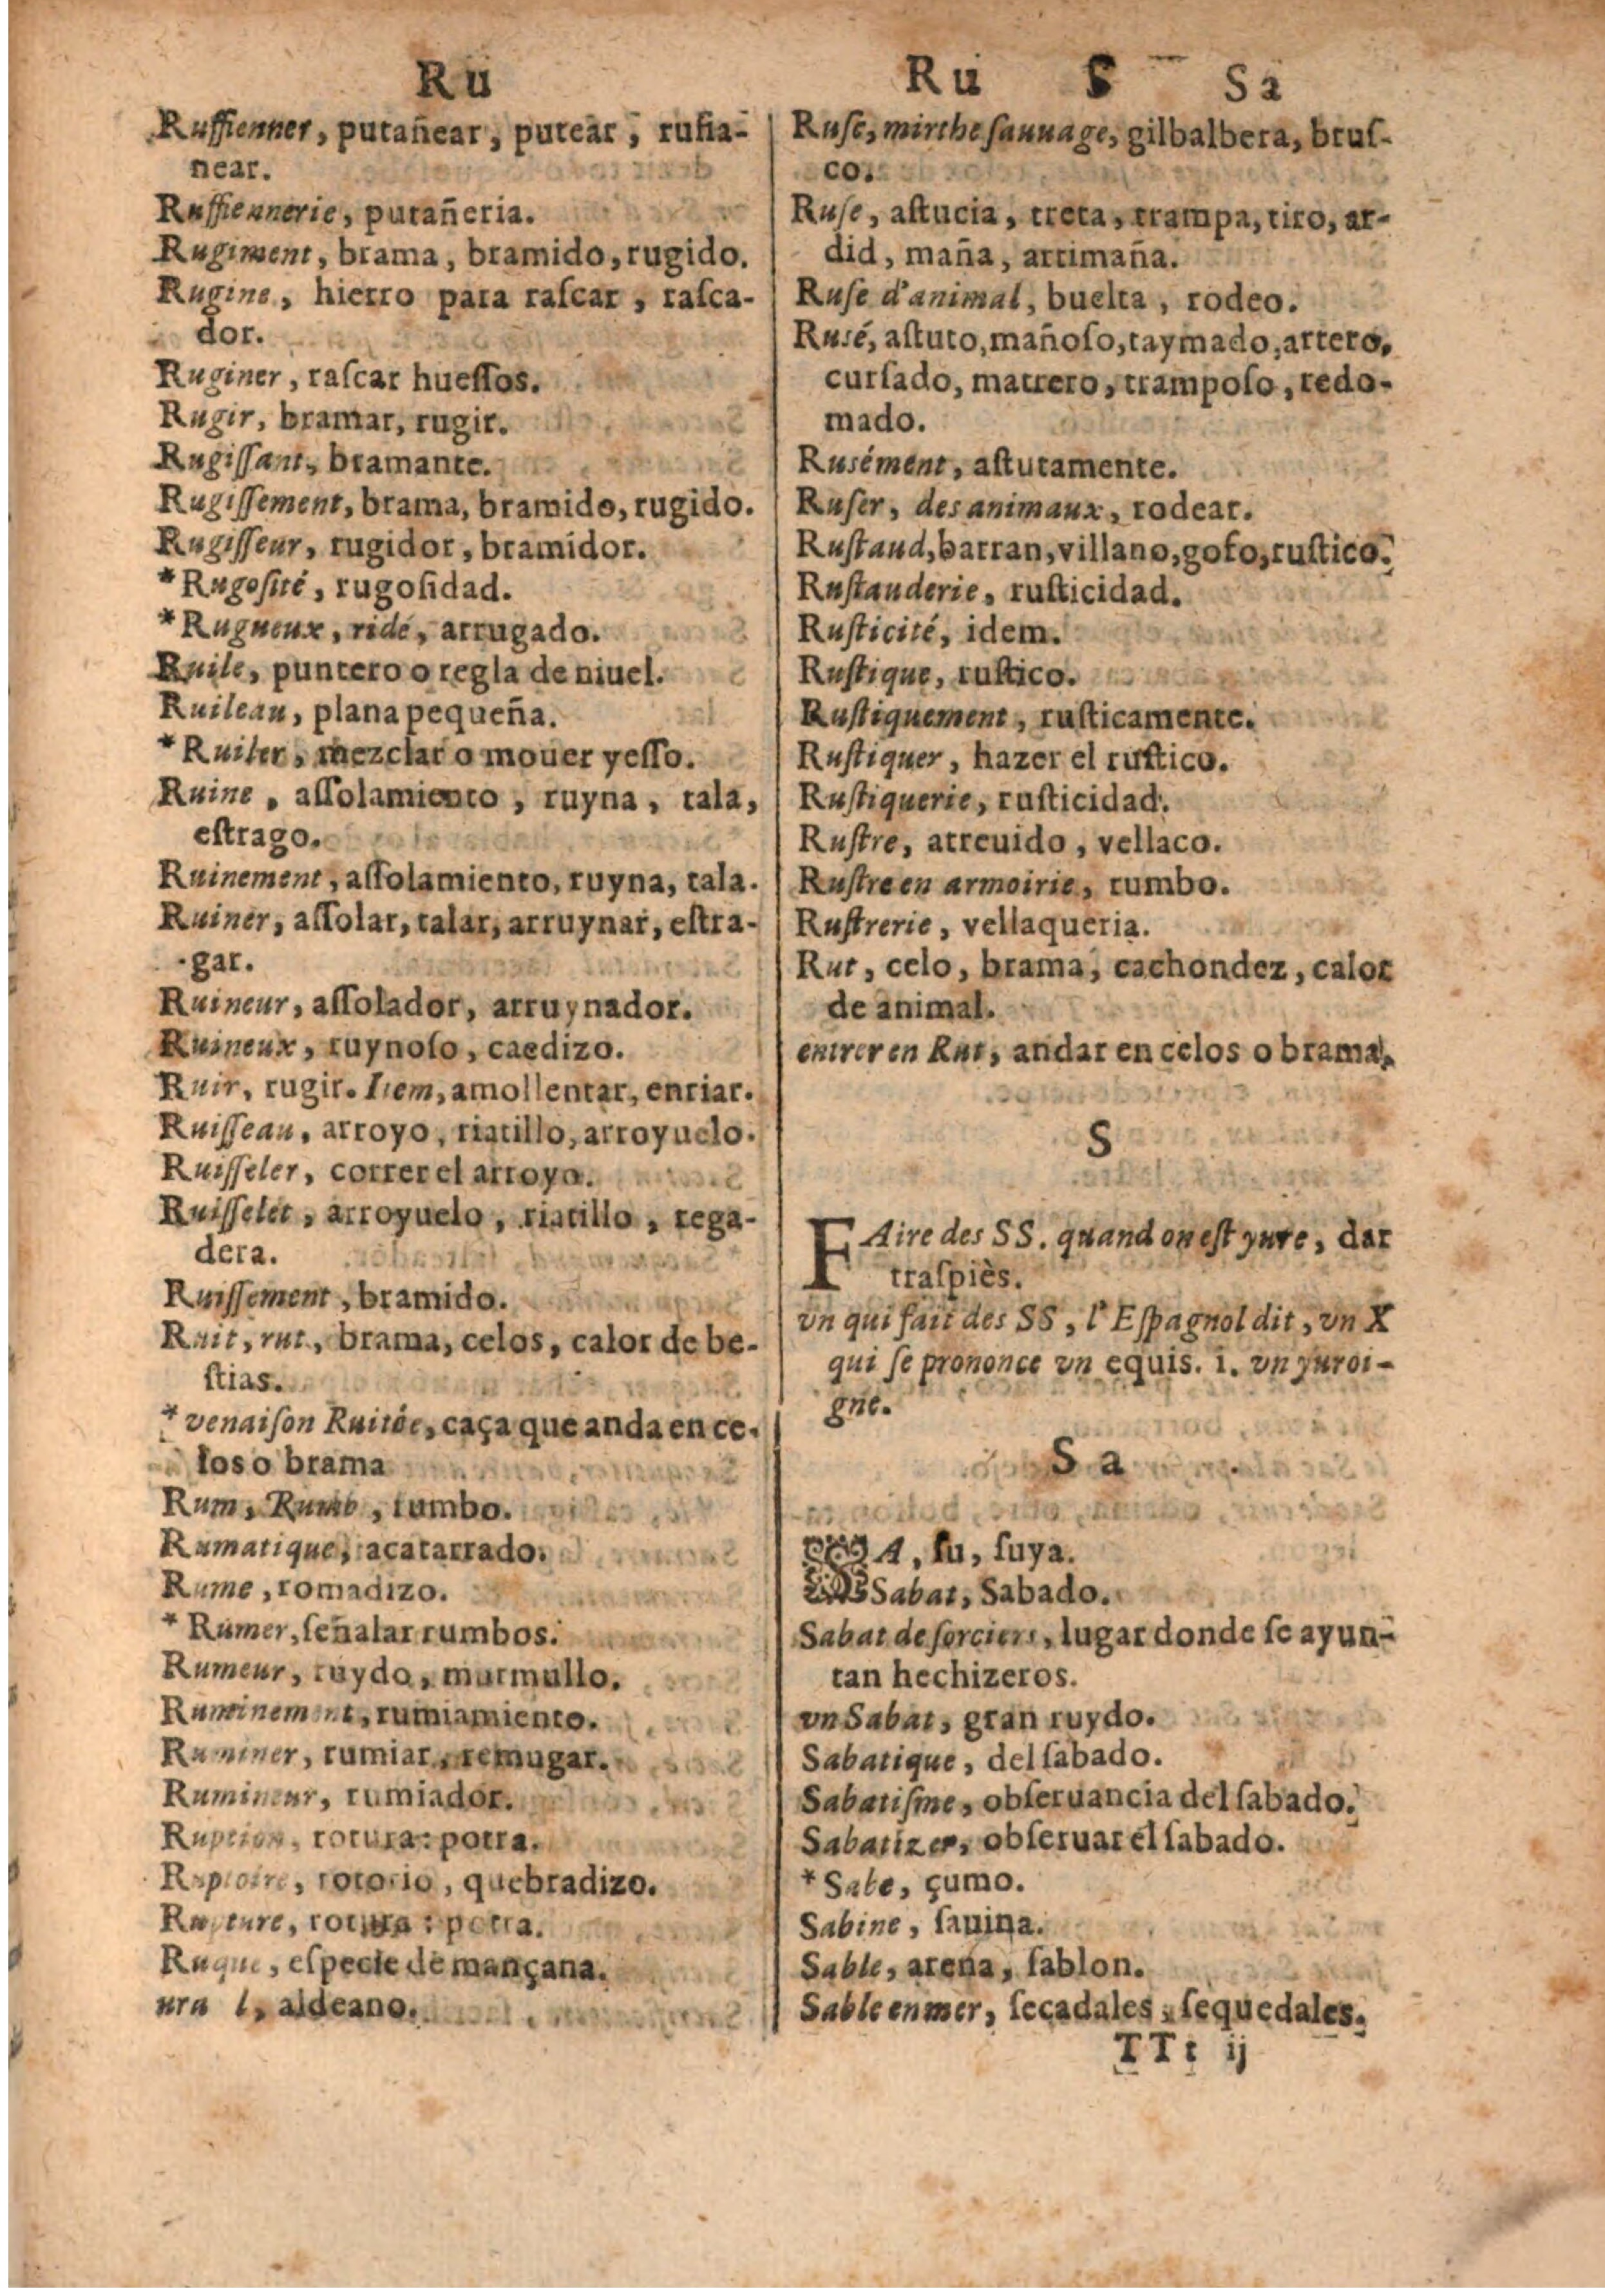 Ru
Ruffienner, putañear, putear, rufia-
near.
Ruffiennerie, putañeria.
Rugiment, brama, bramido, rugido.
Rugine, hierro para raſcar, raſca-
dor.
Ruginer, raſcar hueſſos.
Rugir, bramar, rugir.
Rugiſſant, bramante.
Rugiſſement, brama, bramido, rugido.
Rugiſſeur, rugidor, bramidor.
*Rugoſité, rugoſidad.
*Rugueux, ridé, arrugado.
Ruile, puntero o regla de niuel.
Ruileau, plana pequeña.
*Ruiler, mezclar o mouer yeſſo.
Ruine, aſſolamiento, ruyna, tala,
eſtrago.
Ruinement, aſſolamiento, ruyna, tala.
Ruiner, aſſolar, talar, arruynar, eſtra-
gar.
Ruineur, aſſolador, arruynador.
Ruineux, ruynoſo, caedizo.
Ruir, rugir. Item, amollentar, enriar.
Ruiſſeau, arroyo, riatillo, arroyuelo.
Ruiſſeler, correr el arroyo.
Ruiſſelet, arroyuelo, riatillo, rega-
dera.
Ruiſſement, bramido.
Ruit, rut, brama, celos, calor de be-
ſtias.
* venaiſon Ruitée, caça que anda en ce-
los o brama
Rum, Rumb, rumbo.
Rumatique, acatarrado.
Rume, romadizo.
* Rumer, ſeñalar rumbos.
Rumeur, ruydo, murmullo.
Ruminement, rumiamiento.
Ruminer, rumiar, remugar.
Rumineur, rumiador.
Ruption, rotura: potra.
Ruptoire, rotorio, quebradizo.
Rupture, rotura: potra.
Ruque, eſpecie de mançana.
ura l, aldeano.
Ru S Sa
Ruſc, mirthe ſauuage, gilbalbera, bruſ-
co.
Ruſe, aſtucia, treta, trampa, tiro, ar-
did, maña, artimaña.
Ruſe d'animal, buelta, rodeo.
Rusé, aſtuto, mañoſo, taymado, artero,
curſado, matrero, trampoſo, redo-
mado.
Rusément, aſtutamente.
Ruſer, des animaux, rodear.
Ruſtaud, harran, villano, gofo, ruſtico.
Ruſtauderie, ruſticidad.
Ruſticité, idem.
Ruſtique, ruſtico.
Ruſtiquement, ruſticamente.
Ruſtiquer, hazer el ruſtico.
Ruſtiquerie, ruſticidad.
Ruſtre, atreuido, vellaco.
Ruſtre en armoirie, rumbo.
Ruſtrerie, vellaqueria.
Rut, celo, brama, cachondez, calor
de animal.
entrer en Rut, andar en celos o brama.
S
FAire des SS. quand on eſt yure, dar
traſpiès.
vn qui fait des SS, l'Eſpagnol dit, vn X
qui ſe prononce vn equis. i. vn yuroi-
gne.
Sa
SA, ſu, ſuya.
Sabat, Sabado.
Sabat de ſorciers, lugar donde ſe ayun-
tan hechizeros.
vn Sabat, gran ruydo.
Sabatique, del ſabado.
Sabatiſme, obſeruancia del ſabado.
Sabatizer, obſeruar el ſabado.
*Sabe, çumo.
Sabine, ſauina.
Sable, arena, ſablon.
Sable en mer, ſecadales, ſequedales.
TTt ij